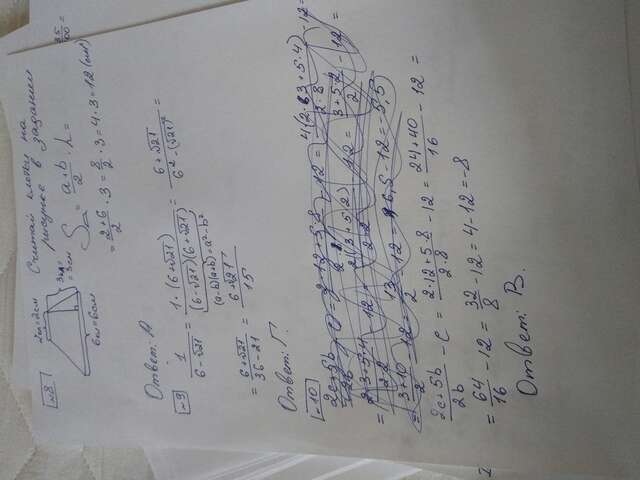 №8
2кл=2см
3кл=
=3см
6кл=6см
Считай клетки на
рисунке в задании
S = (a+b)/2 · h =
= (2+6)/2 · 3 = 8/2 · 3 = 4·3 = 12 (см²)
Ответ: А
№9
1/(6-√21) = 1·(6+√21)/((6-√21)(6+√21)) = (6+√21)/(6²-(√21)²) =
(a-b)(a+b)=a²-b²
= (6+√21)/(36-21) = (6+√21)/15
Ответ: Г.
№10
(2c+5b)/2b - c = (2·12+5·8)/(2·8) - 12 = (24+40)/16 - 12 =
= 64/16 - 12 = 32/8 - 12 = 4-12 = -8
Ответ: В.